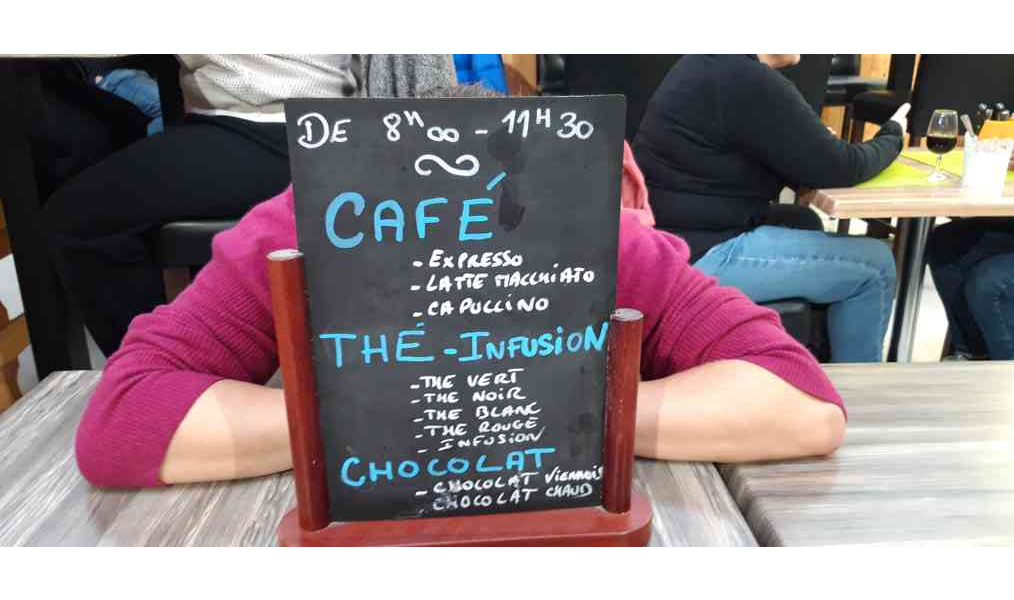 DE 8H00 - 11H30
CAFÉ
- EXPRESSO
- LATTE MACCHIATO
- CAPUCCINO
THÉ - INFUSION
- THE VERT
- THE NOIR
- THE BLANC
- THE ROUGE
- INFUSION
CHOCOLAT
- CHOCOLAT VIENNOIS
- CHOCOLAT CHAUD